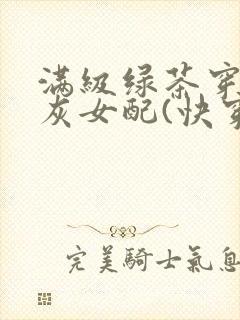 满級绿茶穿
灰女配(快穿
完美騎士氣息